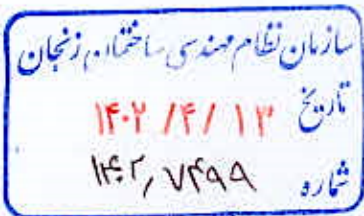 سازمان نظام مهندسی ساختمان زنجان
تاریخ ۱۴۰۲/۴/۱۳
شماره ۱۴۰۲,۷۴۹۹